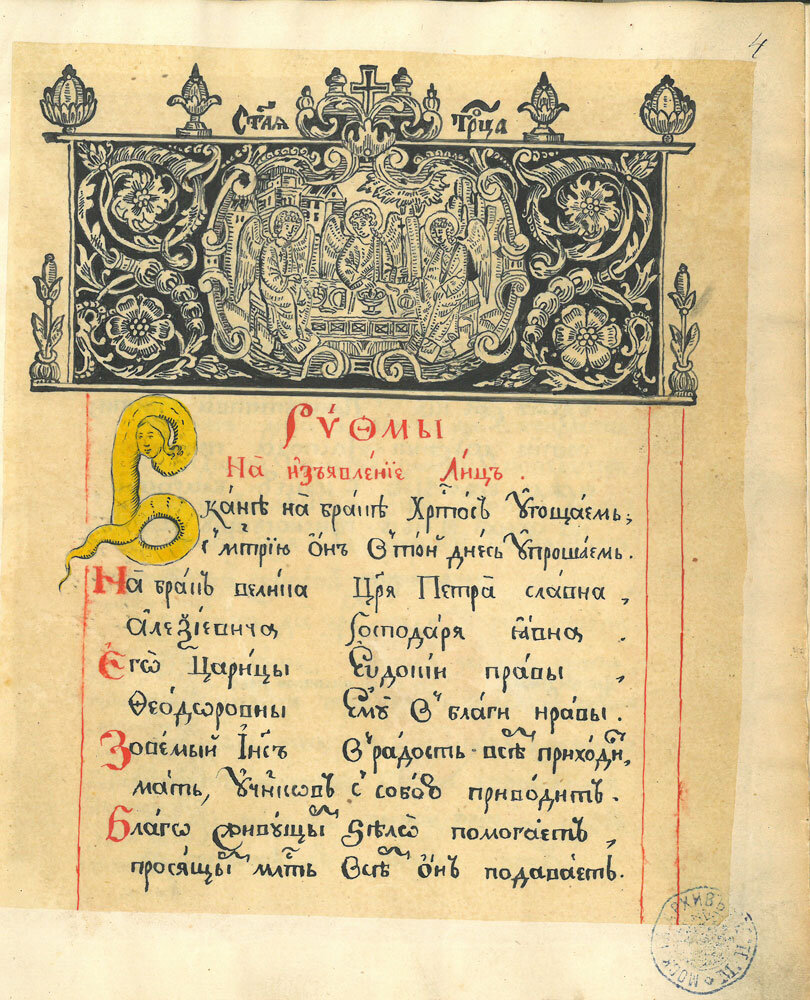 4
Ст҃ая Трⷪ҇ца
Рѵѳмы
На изъявленїе Лицъ .
В канѣ на бракѣ Хрⷭ҇тосъ ѹгощаемь ,
с мт҃рїю онъ в той днесь ѹпрошаемь .
На бракъ велика Цр҃я Петра славна ,
Алеѯїевича Господаря явна .
Егѡ Царицы Еѵдокїи правы ,
Ѳеодѡровны Емꙋ в благи нравы .
Зовемый Іи҃съ в радость всѣмъ приходи ,
мать , ѹчн҃икѡвъ с собою приводитъ .
Благѡ живущымъ ѕѣлѡ помогаетъ ,
просящымъ млⷭ҇ть всѣмъ онъ подаваетъ .